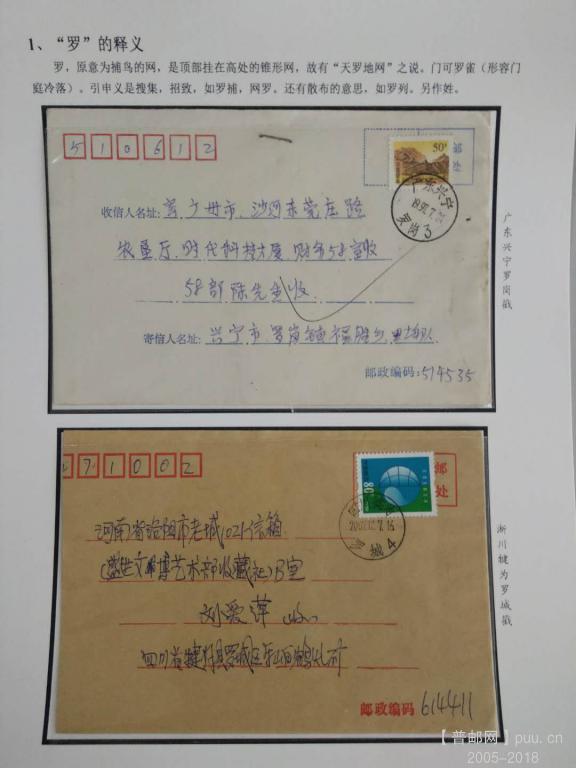 1、“罗”的释义
罗，原意为捕鸟的网，是顶部挂在高处的锥形网，故有“天罗地网”之说。门可罗雀（形容门
庭冷落）。引申义是搜集，招致，如罗捕，网罗。还有散布的意思，如罗列。另作姓。
510612
50
邮
处
广东兴宁
罗岗3
收信人名址：广州市沙河东莞庄路
农垦厅时代科技大厦财务58室收
58部陈先生收
寄信人名址：兴宁市罗岗镇福胜乡
邮政编码：514535
广东兴宁罗岗戳
471002
80
邮
处
2002.12.7.16
罗城4
河南省洛阳市老城1021信箱
B室
刘爱萍 收
四川省犍为县罗城区
邮政编码 614411
淅川犍为罗城戳
【普邮网】puu.cn
2005-2018